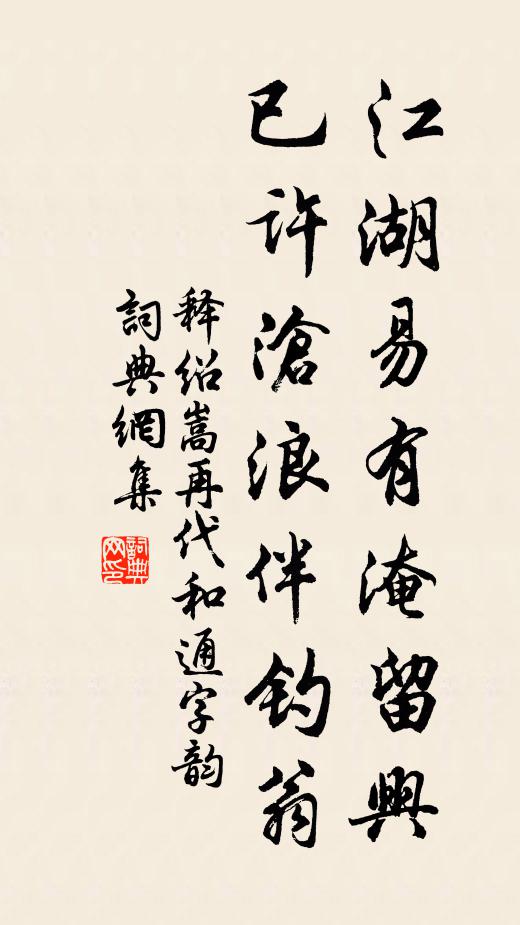 江湖易有淹留興
已許滄浪伴釣翁
释绍嵩再代和通字韵
詞典網集
詞典网印